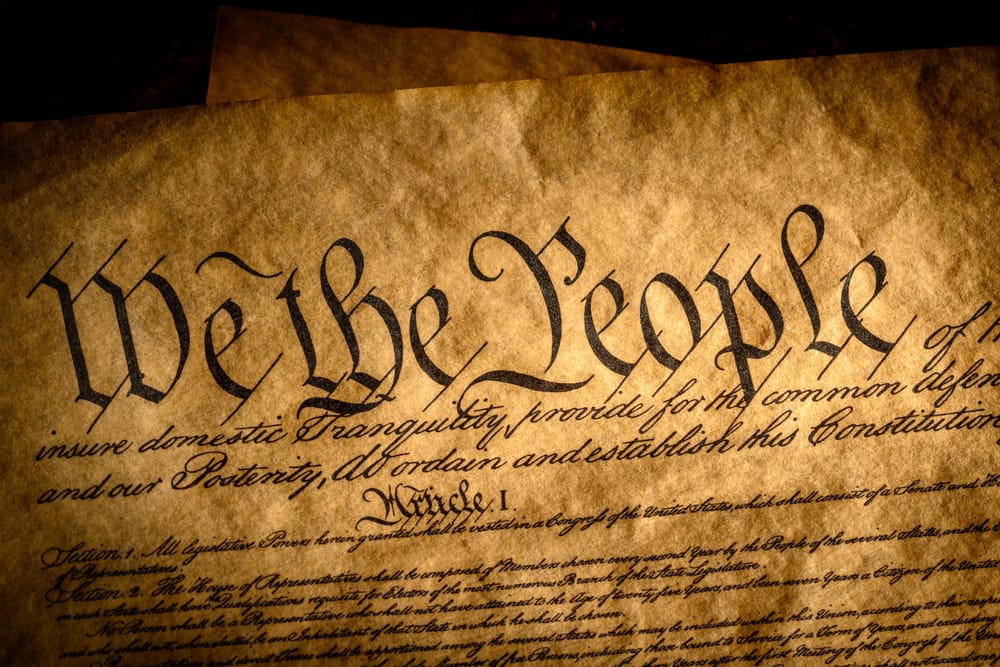 We the People of
insure domestic Tranquility, provide for the common defen
and our Posterity, do ordain and establish this Constitution
Article. I.
Section. 1. All legislative Powers herein granted shall be vested in a Congress of the United States, which shall consist of a Senate and
of Representatives.
Section. 2. The House of Representatives shall be composed of Members chosen every second Year by the People of the several States, and the
in each State shall have Qualifications requisite for Electors of the most numerous Branch of the State Legislature.
No Person shall be a Representative who shall not have attained to the Age of twenty five Years, and been seven Years a Citizen of the United
and who shall not, when elected, be an Inhabitant of that State in which he shall be chosen.
Representatives and direct Taxes shall be apportioned among the several States which may be included within this Union, according to their respe
Number of free Persons, including those bound to Service for a Term of Years, and excluding
Years after the first Meeting of the Congress of the